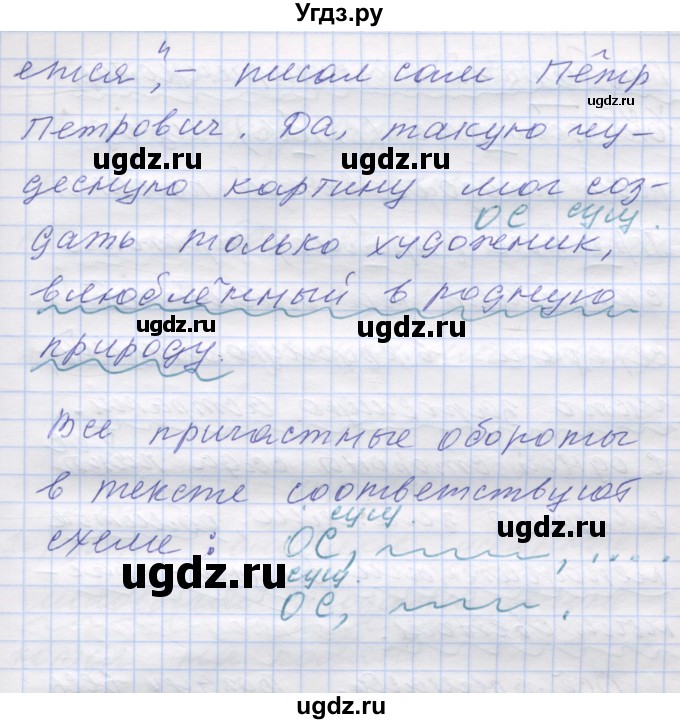 Угдз.ру
ется", – писал сам Пётр
ugdz.ru
Петрович. Да, такую чу-
ugdz.ru ugdz.ru
десную картину мог соз-
ОС сущ.
дать только художник,
влюблённый в родную
ugdz.ru ugdz.ru
природу.
Все причастные обороты
в тексте соответствуют
сущ. ugdz.ru
схеме: ОС, , ....
ugdz.ru сущ. ugdz.ru
ОС, .
ugdz.ru ugdz.ru